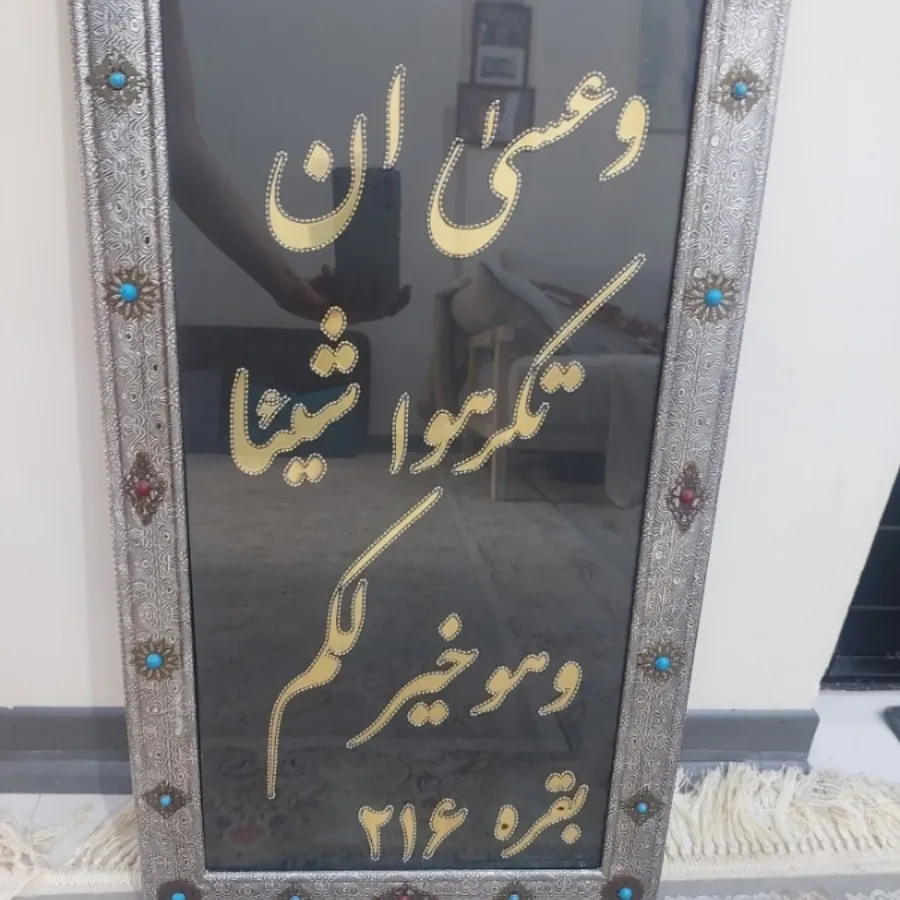 وعسیٰ ان
تکرهوا شیئا
وهو خیر لکم
بقره ۲۱۶